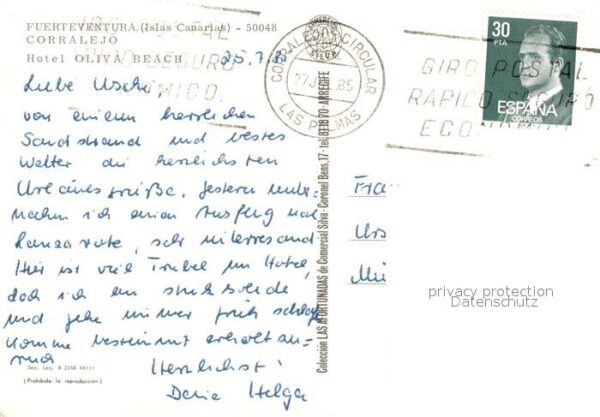 FUERTEVENTURA (Islas Canarias) - 50048
CORRALEJO
Hotel OLIVA BEACH
25.7.85
Liebe Uschi,
von einem herrlichen
Sandstrand und bestes
Wetter die herzlichsten
Urlaubsgrüße. Gestern
machen ich einen Ausflug nach
Lanzarote, sehr interessant
Hier ist viel Trubel im Hotel,
doch ich
und gehe immer früh schlafen
Komme bestimmt erholt an-
rück
Herzlichst!
Deine Helga
Dep. Leg. B 2246 XXIII
(Prohibida la reproducción)
Colección LAS AFORTUNADAS de Comercial Silva - Coronel Bens, 17 - tel. 81 18 70 - ARRECIFE
SILVA
CORREOS CIRCULAR
27 JUL 85
LAS PALMAS
GIRO POSTAL
RAPIDO SEGURO
ECONOMICO
30
PTA
ESPAÑA
CORREOS
Fra
Urs
privacy protection
Datenschutz